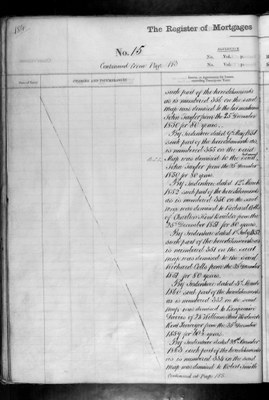 The Register of Mortgages
No. 15
Continued from Page 153
No. Vol.
No. Vol.
such part of the hereditaments
as is numbered 350 on the said
map was demised to the
John Taylor from the 25th December
1850 for 80 years
By Indenture dated 19th May 1851
such part of the hereditaments as
is numbered 355 on the said
Map was demised to the said
John Taylor from the 25th December
1850 for 80 years
By Indenture dated 12th March
1852 such part of the hereditaments
as is numbered 356 on the said
map were demised to Richard Cells
of Charlton Kent Builder from the
25th December 1851 for 80 years.
By Indenture dated 1st July 1852
such part of the hereditaments
as is numbered 351 on the said
map was demised to the said
Richard Cells from the 25th December
1851 for 80 years.
By Indenture dated March
1860 such part of the hereditaments
as is numbered 353 on the said
map was demised to Benjamin
of Woolwich
Kent Surveyor from the 25th December
1859 for years
By Indenture dated December
1863 such part of the hereditaments
as is numbered 354 on the said
map was demised to Robert Smith
Continued at Page